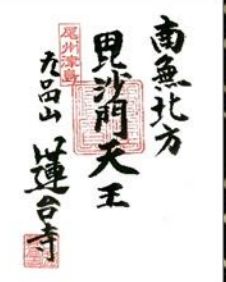 南無北方
毘沙門天王
尾州津島
九品山 蓮台寺